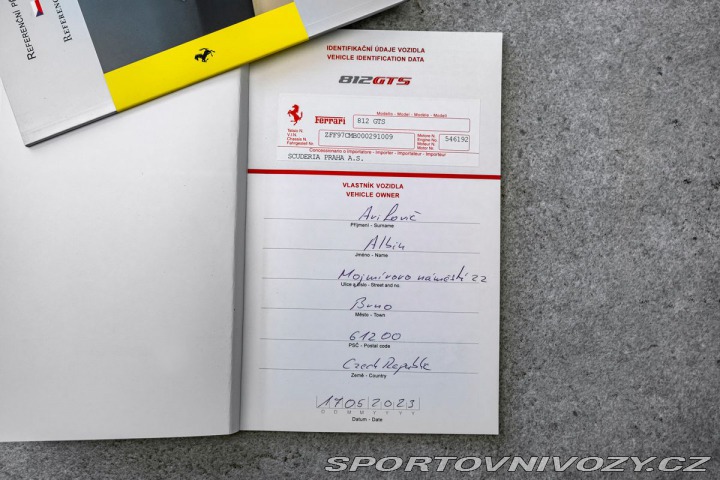 REFERENČNÍ
REFERENC
IDENTIFIKAČNÍ ÚDAJE VOZIDLA
VEHICLE IDENTIFICATION DATA
812GTS
Modello - Model - Modèle - Modell
Ferrari 812 GTS
Telaio N.
V.I.N.
Chassis N.
Fahrgestell Nr.
ZFF97CMB000291009
Motore N.
Engine No.
Moteur N.
Motor Nr.
546192
Concessionario o Importatore - Importer - Importateur - Importeur
SCUDERIA PRAHA A.S.
VLASTNÍK VOZIDLA
VEHICLE OWNER
Příjmení - Surname
Albin
Jméno - Name
Mojmírovo náměstí 22
Ulice a číslo - Street and no
Brno
Město - Town
61200
PSČ - Postal code
Czech Republic
Země - Country
17052023
D D M M Y Y Y Y
Datum - Date
SPORTOVNIVOZY.CZ